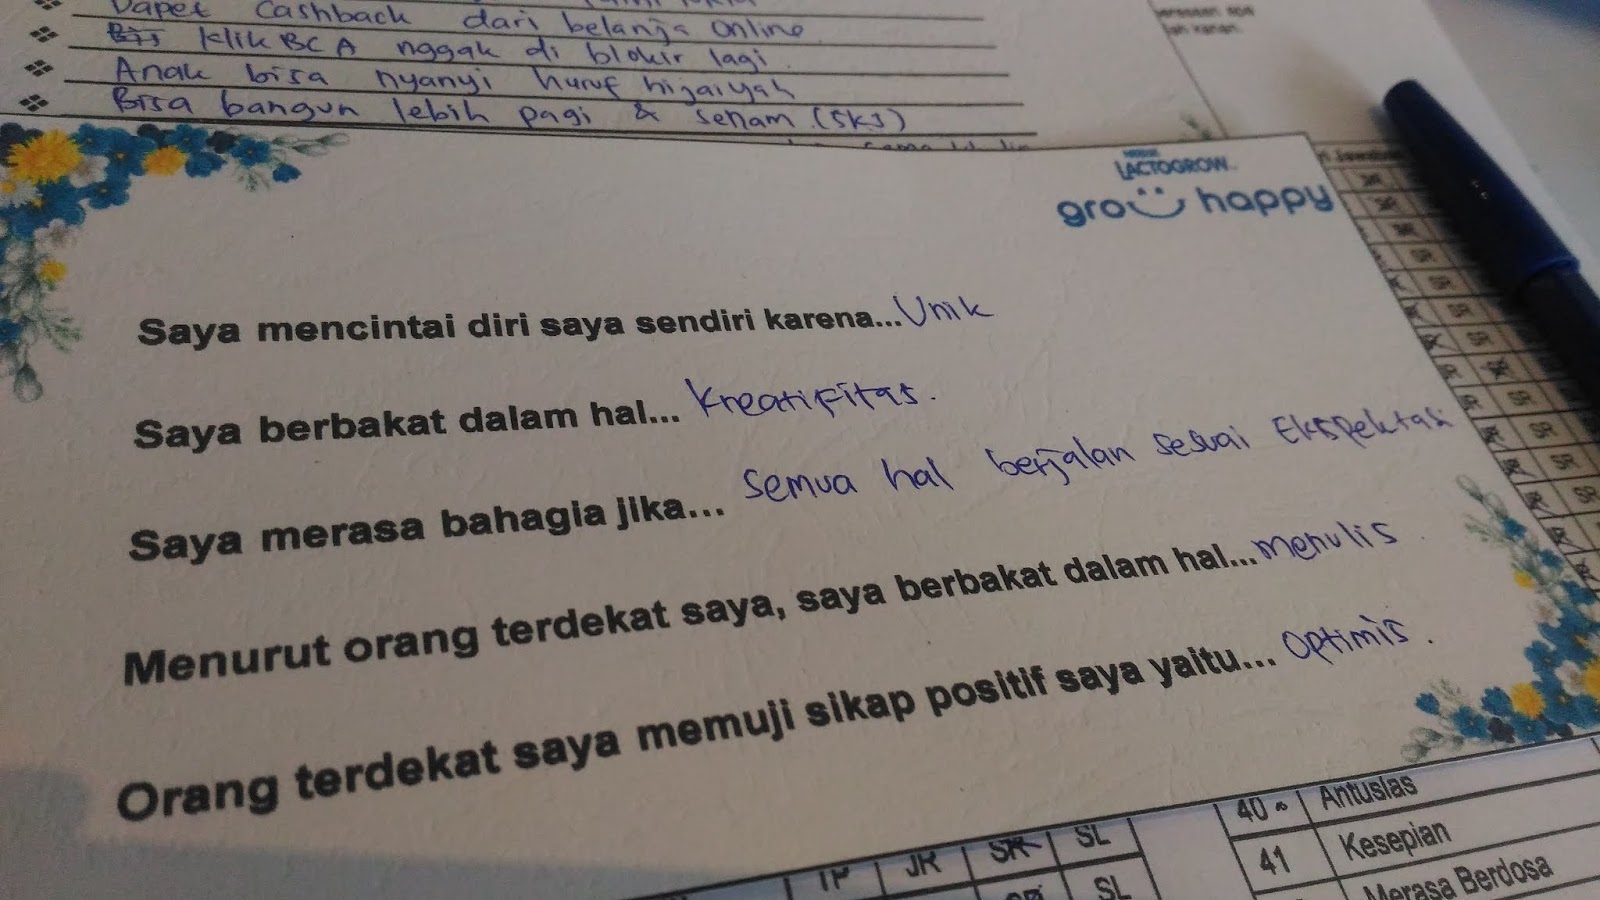 Dapet Cashback dari belanja online
klik BCA nggak di blokir lagi.
Anak bisa nyanyi huruf hijaiyah
Bisa bangun lebih pagi & senam (SKJ)
LACTOGROW
grow happy
Saya mencintai diri saya sendiri karena... Unik
Saya berbakat dalam hal... Kreatifitas.
Saya merasa bahagia jika... semua hal berjalan sesuai Ekspektasi
Menurut orang terdekat saya, saya berbakat dalam hal... menulis.
Orang terdekat saya memuji sikap positif saya yaitu... Optimis.
40 Antusias
41 Kesepian
Merasa Berdosa
TP JR SR SL
SL